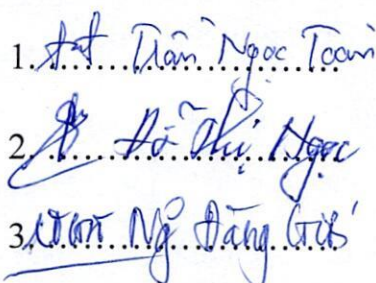 1. Trần Ngọc Toàn
2. Đỗ Thị Ngọc
3. Ng̃ Đăng